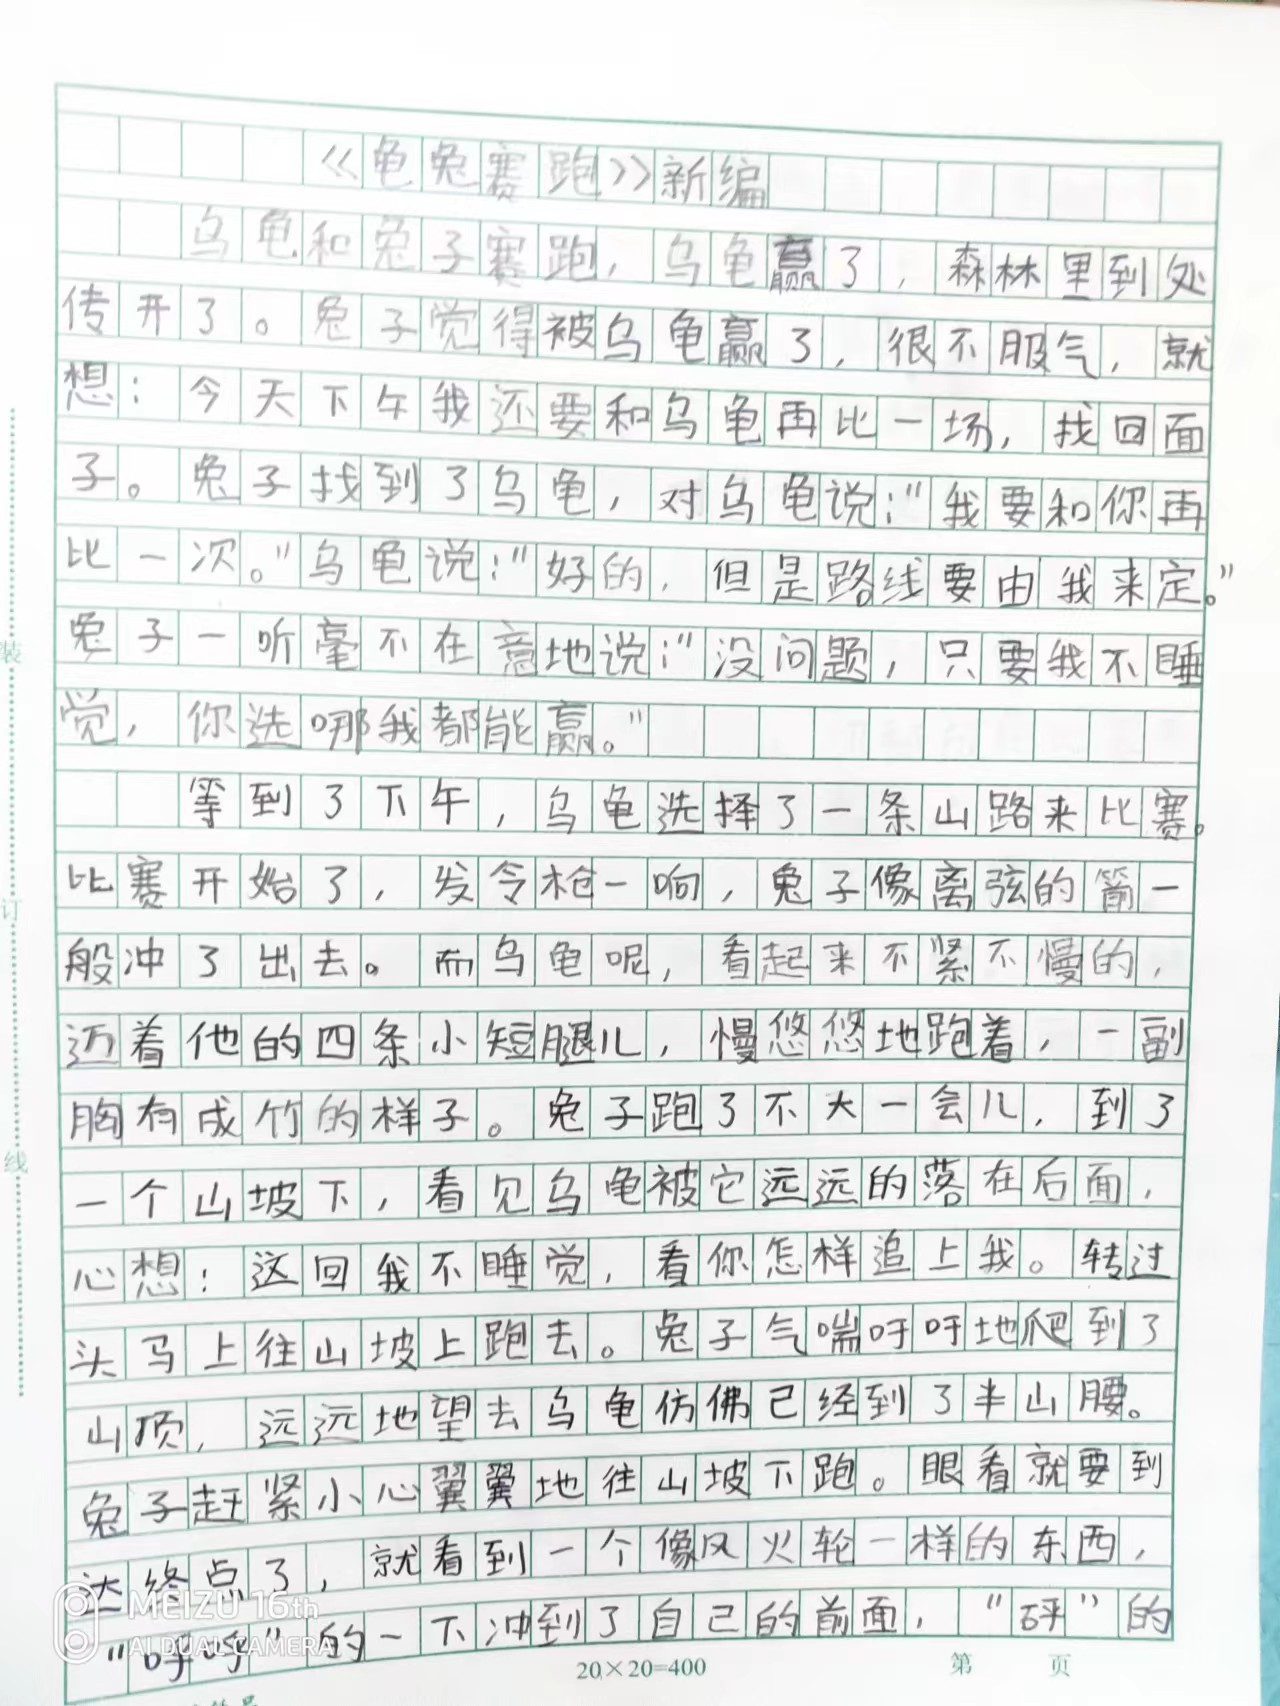 《龟兔赛跑》新编
乌龟和兔子赛跑，乌龟赢了，森林里到处
传开了。兔子觉得被乌龟赢了，很不服气，就
想：今天下午我还要和乌龟再比一场，找回面
子。兔子找到了乌龟，对乌龟说：“我要和你再
比一次。”乌龟说：“好的，但是路线要由我来定。”
兔子一听毫不在意地说：“没问题，只要我不睡
觉，你选哪我都能赢。”
等到了下午，乌龟选择了一条山路来比赛。
比赛开始了，发令枪一响，兔子像离弦的箭一
般冲了出去。而乌龟呢，看起来不紧不慢的，
迈着他的四条小短腿儿，慢悠悠地跑着，一副
胸有成竹的样子。兔子跑了不大一会儿，到了
一个山坡下，看见乌龟被它远远的落在后面，
心想：这回我不睡觉，看你怎样追上我。转过
头马上往山坡上跑去。兔子气喘吁吁地爬到了
山顶，远远地望去乌龟仿佛已经到了半山腰。
兔子赶紧小心翼翼地往山坡下跑。眼看就要到
达终点了，就看到一个像风火轮一样的东西，
“呼呼”的一下冲到了自己的前面，“砰”的
装
订
线
MEIZU 16th
AI DUAL CAMERA
20×20=400
第 页